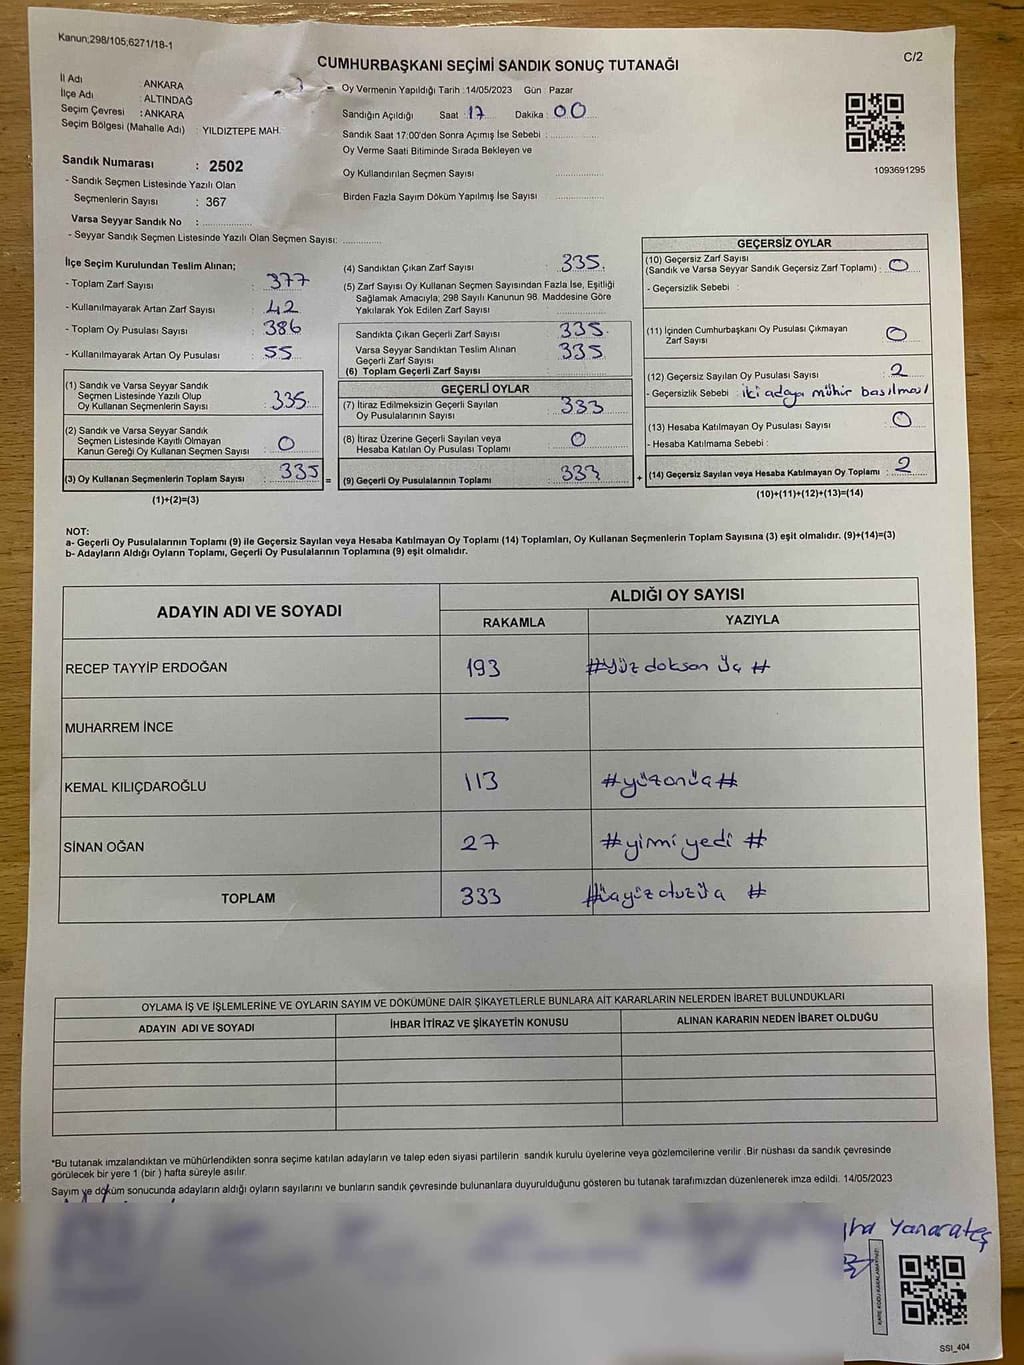 Kanun;298/105;6271/18-1
C/2
CUMHURBAŞKANI SEÇİMİ SANDIK SONUÇ TUTANAĞI
İl Adı : ANKARA
İlçe Adı : ALTINDAĞ
Seçim Çevresi : ANKARA
Seçim Bölgesi (Mahalle Adı) : YILDIZTEPE MAH.
Sandık Numarası : 2502
- Sandık Seçmen Listesinde Yazılı Olan
Seçmenlerin Sayısı : 367
Varsa Seyyar Sandık No :
- Seyyar Sandık Seçmen Listesinde Yazılı Olan Seçmen Sayısı:
Oy Vermenin Yapıldığı Tarih : 14/05/2023 Gün : Pazar
Sandığın Açıldığı Saat : 17 Dakika : 00
Sandık Saat 17:00'den Sonra Açımış İse Sebebi :
Oy Verme Saati Bitiminde Sırada Bekleyen ve
Oy Kullandırılan Seçmen Sayısı
Birden Fazla Sayım Döküm Yapılmış İse Sayısı
1093691295
İlçe Seçim Kurulundan Teslim Alınan;
- Toplam Zarf Sayısı : 377
- Kullanılmayarak Artan Zarf Sayısı : 42
- Toplam Oy Pusulası Sayısı : 386
- Kullanılmayarak Artan Oy Pusulası : 55
(1) Sandık ve Varsa Seyyar Sandık
Seçmen Listesinde Yazılı Olup
Oy Kullanan Seçmenlerin Sayısı : 335
(2) Sandık ve Varsa Seyyar Sandık
Seçmen Listesinde Kayıtlı Olmayan
Kanun Gereği Oy Kullanan Seçmen Sayısı : 0
(3) Oy Kullanan Seçmenlerin Toplam Sayısı : 335
(1)+(2)=(3)
(4) Sandıktan Çıkan Zarf Sayısı : 335
(5) Zarf Sayısı Oy Kullanan Seçmen Sayısından Fazla İse, Eşitliği
Sağlamak Amacıyla; 298 Sayılı Kanunun 98. Maddesine Göre
Yakılarak Yok Edilen Zarf Sayısı :
Sandıkta Çıkan Geçerli Zarf Sayısı : 335
Varsa Seyyar Sandıktan Teslim Alınan
Geçerli Zarf Sayısı : 335
(6) Toplam Geçerli Zarf Sayısı
GEÇERLİ OYLAR
(7) İtiraz Edilmeksizin Geçerli Sayılan
Oy Pusulalarının Sayısı : 333
(8) İtiraz Üzerine Geçerli Sayılan veya
Hesaba Katılan Oy Pusulası Toplamı : 0
= (9) Geçerli Oy Pusulalarının Toplamı : 333
GEÇERSİZ OYLAR
(10) Geçersiz Zarf Sayısı
(Sandık ve Varsa Seyyar Sandık Geçersiz Zarf Toplamı) : 0
- Geçersizlik Sebebi :
(11) İçinden Cumhurbaşkanı Oy Pusulası Çıkmayan
Zarf Sayısı : 0
(12) Geçersiz Sayılan Oy Pusulası Sayısı : 2
- Geçersizlik Sebebi : iki adaya mühür basılması
(13) Hesaba Katılmayan Oy Pusulası Sayısı : 0
- Hesaba Katılmama Sebebi :
+ (14) Geçersiz Sayılan veya Hesaba Katılmayan Oy Toplamı : 2
(10)+(11)+(12)+(13)=(14)
NOT:
a- Geçerli Oy Pusulalarının Toplamı (9) ile Geçersiz Sayılan veya Hesaba Katılmayan Oy Toplamı (14) Toplamları, Oy Kullanan Seçmenlerin Toplam Sayısına (3) eşit olmalıdır. (9)+(14)=(3)
b- Adayların Aldığı Oyların Toplamı, Geçerli Oy Pusulalarının Toplamına (9) eşit olmalıdır.
ADAYIN ADI VE SOYADI
ALDIĞI OY SAYISI
RAKAMLA YAZIYLA
RECEP TAYYİP ERDOĞAN 193 #Yüz doksan üç #
MUHARREM İNCE —
KEMAL KILIÇDAROĞLU 113 #yüzonüç#
SİNAN OĞAN 27 #yirmi yedi #
TOPLAM 333 #üçyüzotuzüç #
OYLAMA İŞ VE İŞLEMLERİNE VE OYLARIN SAYIM VE DÖKÜMÜNE DAİR ŞİKAYETLERLE BUNLARA AİT KARARLARIN NELERDEN İBARET BULUNDUKLARI
ADAYIN ADI VE SOYADI İHBAR İTİRAZ VE ŞİKAYETİN KONUSU ALINAN KARARIN NEDEN İBARET OLDUĞU
*Bu tutanak imzalandıktan ve mühürlendikten sonra seçime katılan adayların ve talep eden siyasi partilerin sandık kurulu üyelerine veya gözlemcilerine verilir .Bir nüshası da sandık çevresinde
görülecek bir yere 1 (bir ) hafta süreyle asılır.
Sayım ve döküm sonucunda adayların aldığı oyların sayılarını ve bunların sandık çevresinde bulunanlara duyurulduğunu gösteren bu tutanak tarafımızdan düzenlenerek imza edildi. 14/05/2023
Yanarateş
KARE KODU KARALAMAYINIZ!
SSI_404